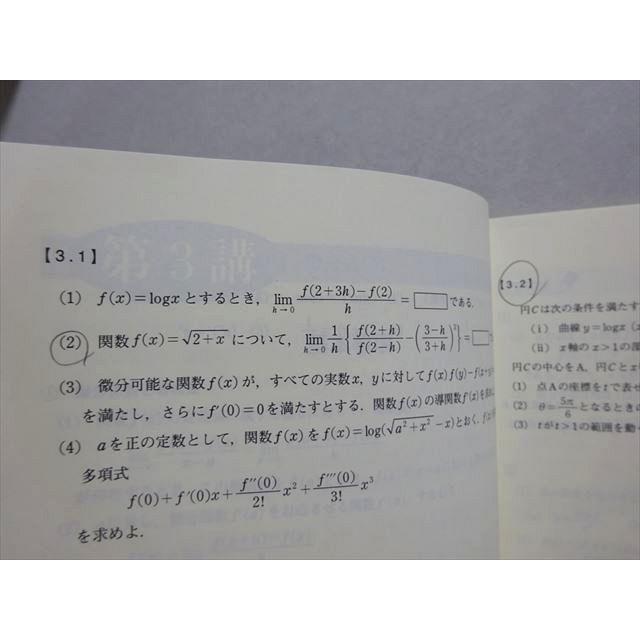 第3講
【3.1】
(1) f(x)=logxとするとき, lim h→0 f(2+3h)−f(2)/h = □ である.
(2) 関数f(x)=√2+x について, lim h→0 1/h { f(2+h)/f(2−h) − (3−h/3+h)² } = □
(3) 微分可能な関数f(x)が, すべての実数x, yに対してf(x)f(y)−f(x+y)
を満たし, さらにf′(0)=0を満たすとする. 関数f(x)の導関数f′(x)を
(4) aを正の定数として, 関数f(x)をf(x)=log(√a²+x² −x)とおく.
多項式
f(0)+f′(0)x+ f″(0)/2! x²+ f‴(0)/3! x³
を求めよ.
【3.2】
円Cは次の条件を満たす
(i) 曲線y=logx (x
(ii) x軸のx>1の部
円Cの中心をA, 円Cとx
(1) 点Aの座標をtで表せ
(2) θ=5π/6 となるとき
(3) tがt>1の範囲を動